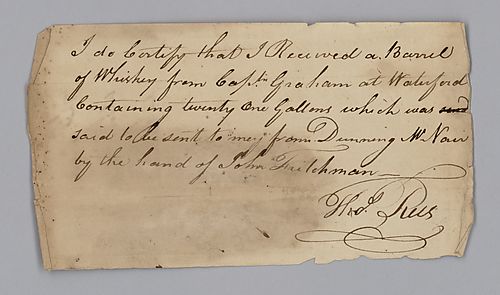 I do Certify that I Received a Barrel
of Whiskey from Capt. Graham at Waterford
Containing twenty One Gallons which was said
said to be sent to me, from Dunning McNair
by the hand of John Fritchman
Thos. Rees